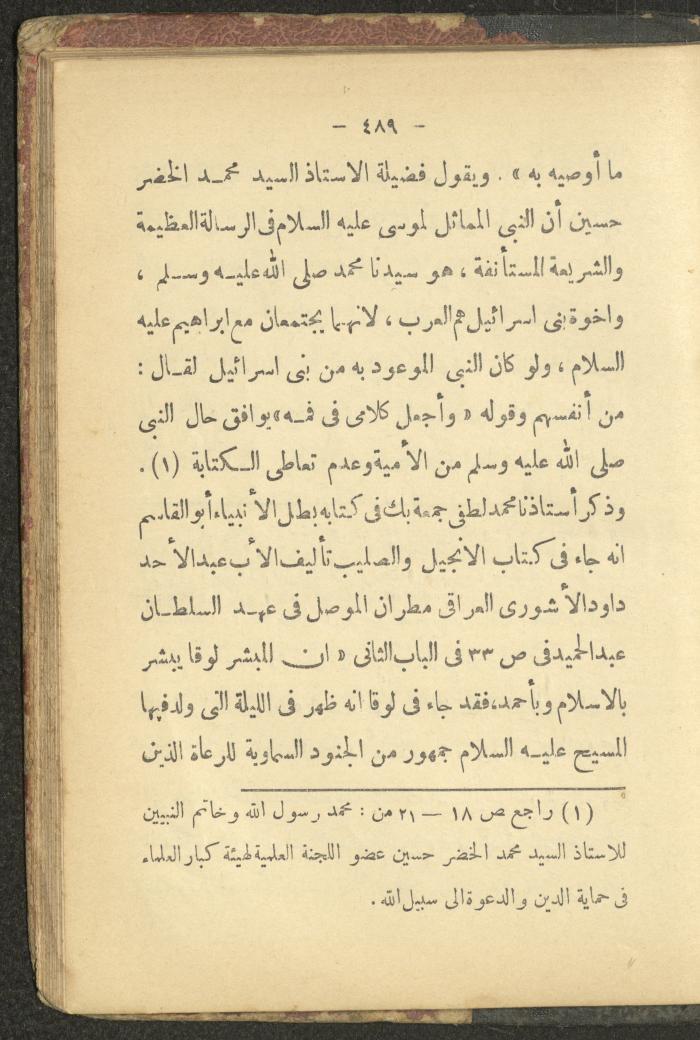 — ٤٨٩ —
ما أوصيه به » . ويقول فضيلة الاستاذ السيد محمد الخضر
حسين أن النبي المماثل لموسى عليه السلام فى الرسالة العظيمة
والشريعة المستأنفة ، هو سيدنا محمد صلى الله عليه وسلم ،
واخوة بنى اسرائيل هم العرب ، لانهما يجتمعان مع ابراهيم عليه
السلام ، ولو كان النبي الموعود به من بنى اسرائيل لقال :
من أنفسهم وقوله « وأجعل كلامى فى فمه » يوافق حال النبي
صلى الله عليه وسلم من الأمية وعدم تعاطى الكتابة (١) .
وذكر أستاذنا محمد لطفى جمعة بك فى كتابه بطل الأنبياء أبو القاسم
انه جاء فى كتاب الانجيل والصليب تأليف الأب عبد الأحد
داود الأشورى العراقى مطران الموصل فى عهد السلطان
عبد الحميد فى ص ٣٣ فى الباب الثانى « ان المبشر لوقا يبشر
بالاسلام وبأحمد ، فقد جاء فى لوقا انه ظهر فى الليلة التى ولد فيها
المسيح عليه السلام جمهور من الجنود السماوية للرعاة الذين
(١) راجع ص ١٨ — ٢١ من : محمد رسول الله وخاتم النبيين
للاستاذ السيد محمد الخضر حسين عضو اللجنة العلمية لهيئة كبار العلماء
فى حماية الدين والدعوة الى سبيل الله .